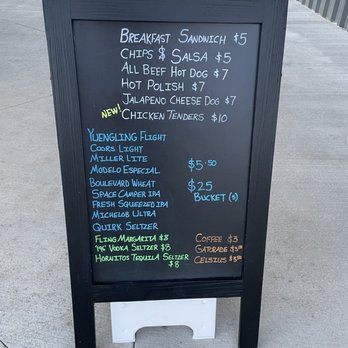 Breakfast Sandwich $5
Chips & Salsa $5
All Beef Hot Dog $7
Hot Polish $7
Jalapeno Cheese Dog $7
New!
Chicken Tenders $10
Yuengling Flight
Coors Light
Miller Lite
Modelo Especial
$5.50
Boulevard Wheat
Space Camper IPA
Fresh Squeezed IPA
Michelob Ultra
Quirk Seltzer
$25
Bucket (5)
Fling Margarita $8
Vodka Seltzer $8
Hornitos Tequila Seltzer
$8
Coffee $3
Gatorade
Celsius